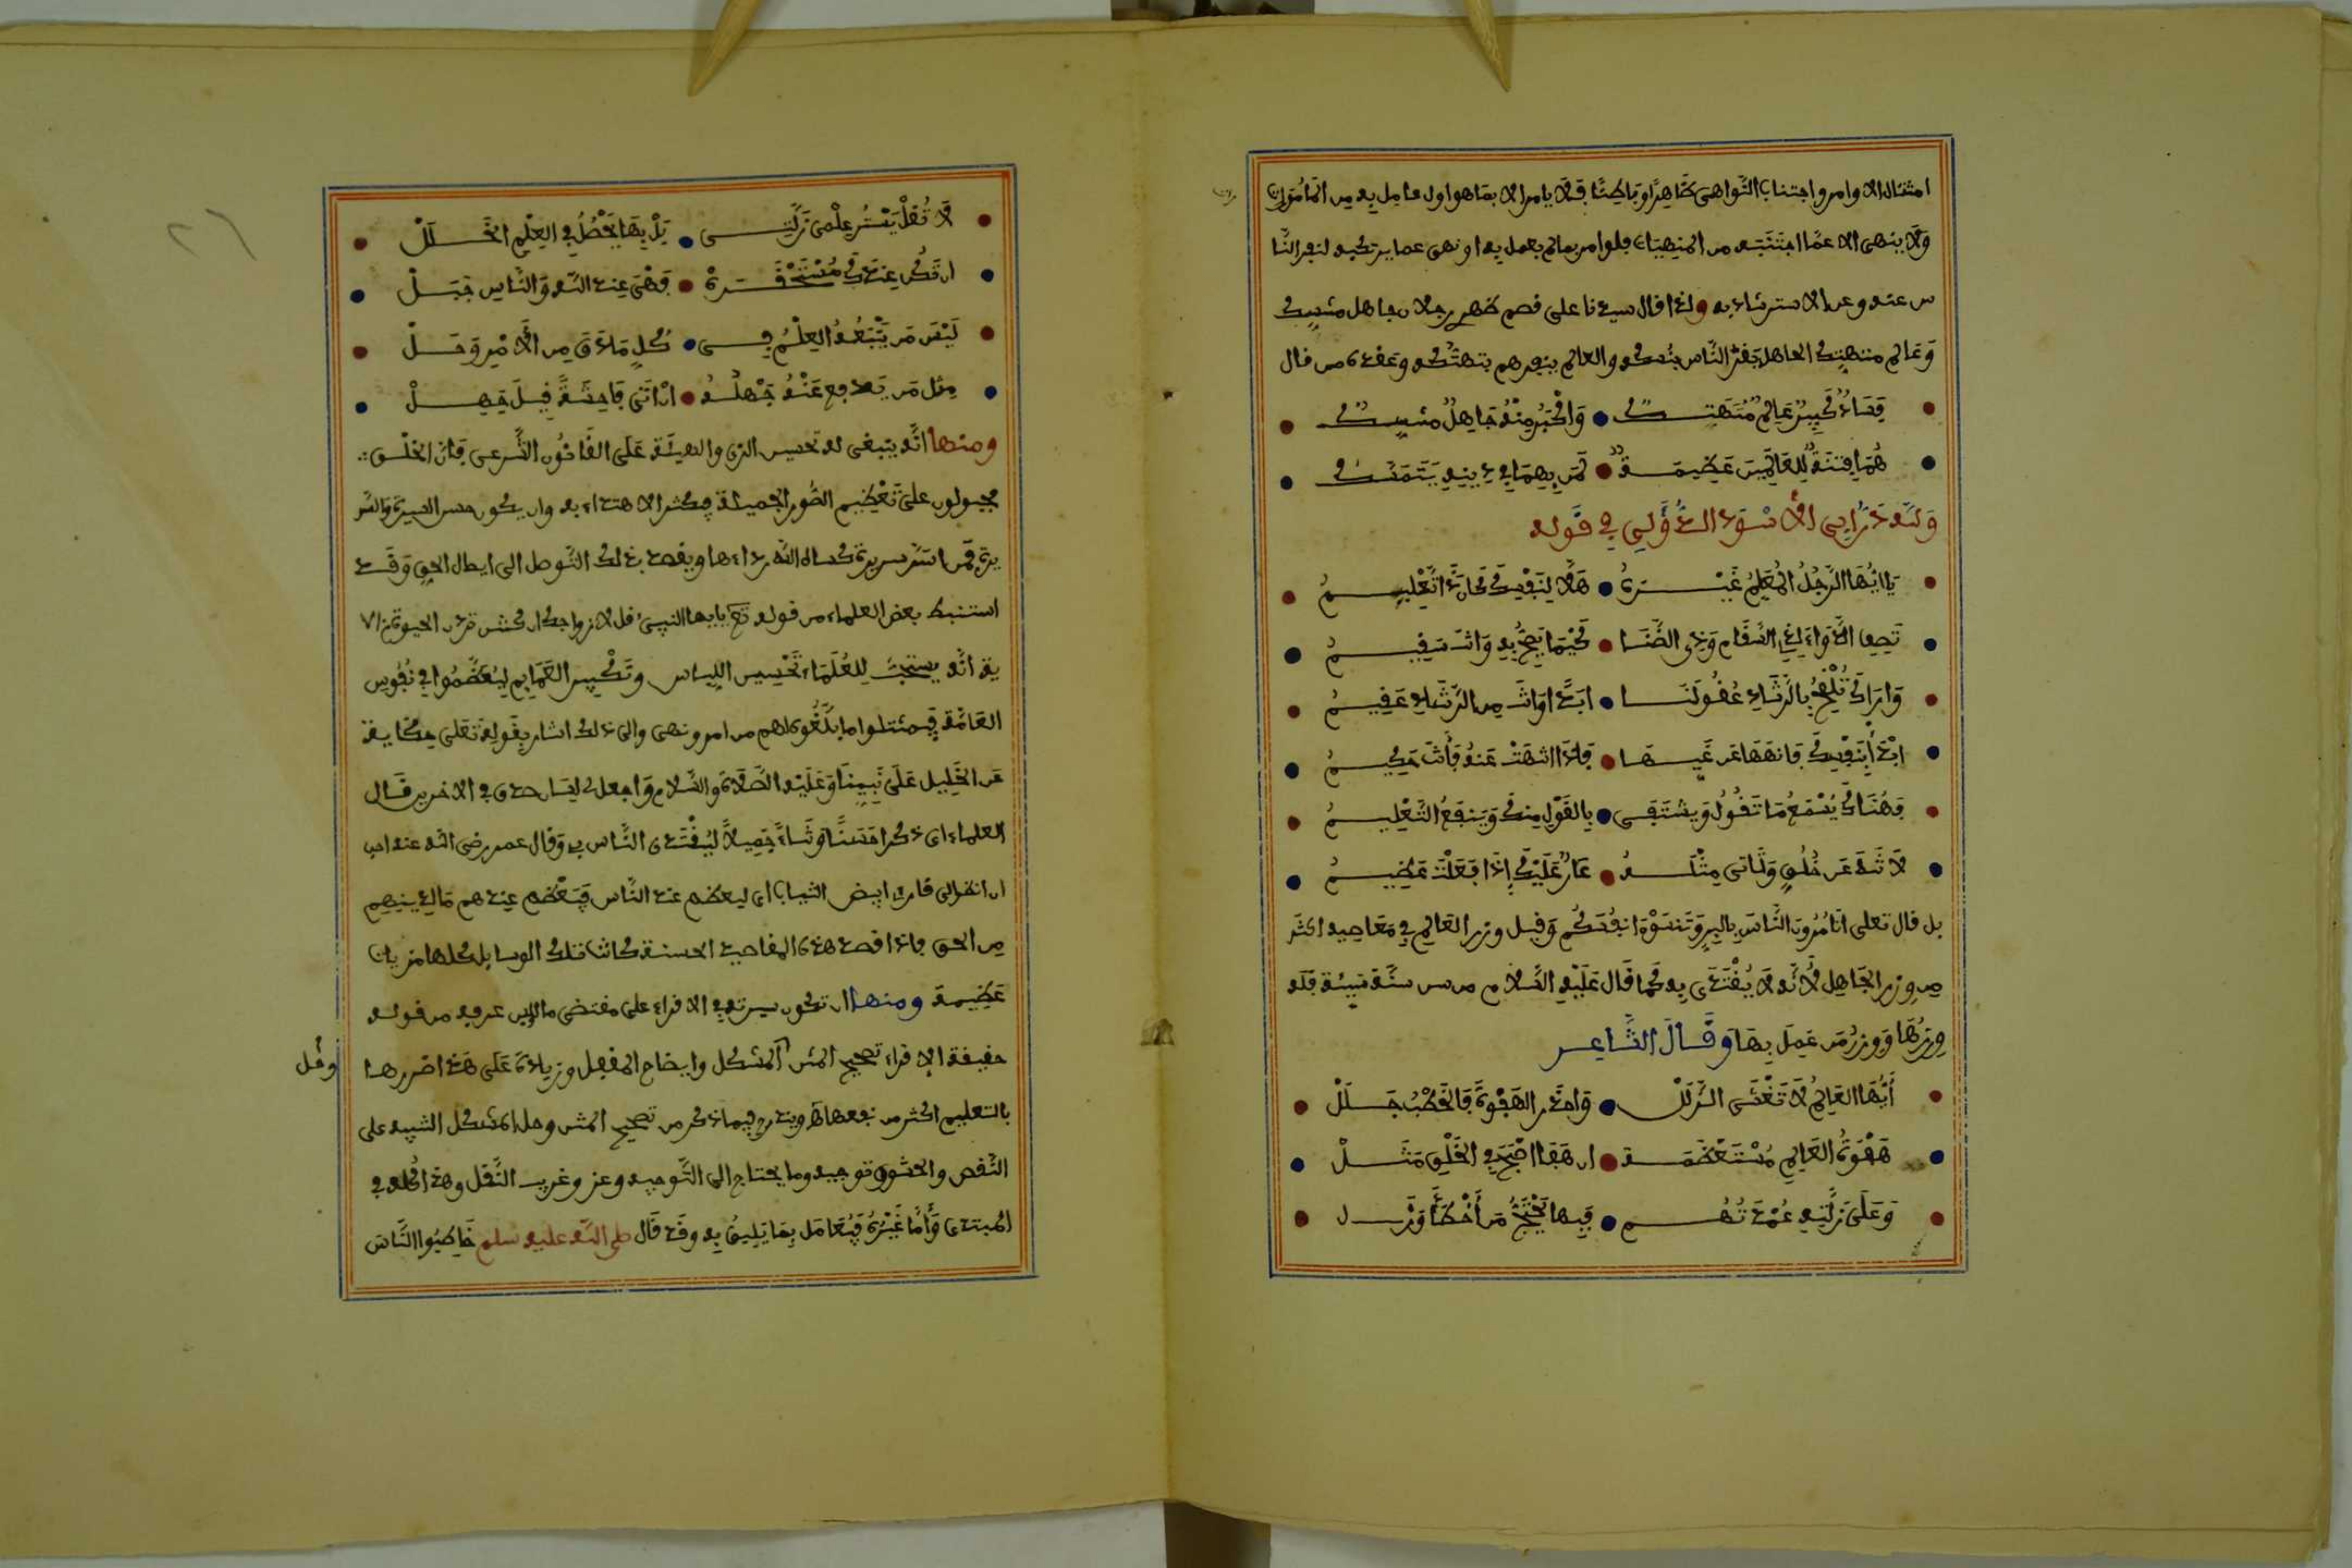 امتثال الاوامر واجتناب النواهى ظاهرا وباطنا فلا يامر الا بما هو اول عامل به من المامورات
ولا ينهى الا عما اجتنبه من المنهيات فلو امر بما لم يعمل به او نهى عما يرتكبه لنفر النا
س عنه وعن الاسترشاد به ولذا قال سيدنا على قصم ظهرى رجلان جاهل متنسك
وعالم متهتك الجاهل يغر الناس بتنسكه والعالم ينفرهم بتهتكه وعقده من قال
فساد كبير عالم متهتك • واكبر منه جاهل متنسك
هما فتنة للعالمين عظيمة • لمن بهما فى دينه يتمسك
ولله در ابى الاسود الدؤلى فى قوله
يا ايها الرجل المعلم غيره • هلا لنفسك كان ذا التعليم
تصف الدواء لذى السقام وذى الضنا • كيما يصح به وانت سقيم
واراك تلقح بالرشاد عقولنا • ابدا وانت من الرشاد عقيم
ابدأ بنفسك فانهها عن غيها • فاذا انتهت عنه فأنت حكيم
فهناك يسمع ما تقول ويشتفى • بالقول منك وينفع التعليم
لا تنه عن خلق وتاتى مثله • عار عليك إذا فعلت عظيم
بل قال تعلى اتامرون الناس بالبر وتنسون انفسكم وقيل وزر العالم فى معاصيه اكثر
من وزر الجاهل لأنه لا يقتدى به كما قال عليه السلام من سن سنة سيئة فله
وزرها ووزر من عمل بها وقال الشاعر
أيها العالم لا تغشى الزلل • واحذر الهفوة فالخطب جلل
هفوة العالم مستعظمة • ان هفا اصبح فى الخلق مثل
وعلى زلته عمدتهم • فبها يحتج من أخطأ وزل
لا تقل يستر علمى زلتى • بل بها يحصل فى العلم الخلل
ان تكن عندك مستحقرة • فهى عند الله والناس جبل
ليس من يتبعه العلم فى • كل ما دق من الأمر وجل
مثل من يدفع عنه جهله • ان اتى فاحشة قيل جهل
ومنها انه ينبغى له تحسين الزى والهيئة على القانون الشرعى فان الخلق
مجبولون على تعظيم الصور الجميلة فيكثر الاهتداء به وان يكون حسن السيرة والسر
يرة فمن اسر سريرة كساه الله رداءها ويقصد بذلك التوصل الى ايصال الحق وقد
استنبط بعض العلماء من قوله تع يايها النبىء قل لازواجك ان كنتن تردن الحيوة الا
ية انه يستحب للعلماء تحسين اللباس وتكبير العمايم ليعظموا فى نفوس
العامة فيمتثلوا ما بلغوه لهم من امر ونهى والى ذلك اشار بقوله تعلى حكاية
عن الخليل على نبينا وعليه الصلاة والسلام واجعل لى لسان صدق فى الاخرين قال
العلماء اى ذكرا حسنا وثناء جميلا ليقتدى الناس بى وقال عمر رضى الله عنه احب
ان انظر الى قارئ ابيض الثياب اى ليعظم عند الناس فيعظم عندهم ما لديه
من الحق فاذا قصد هذه المقاصد الحسنة كانت تلك الوسايل كلها قربات
عظيمة ومنها ان تكون سيرته فى الاقراء على مقتضى ما عرف من قوله
حقيقة الاقراء تصحيح المتن المشكل وايضاح المقفل وزيادة على هذا ضررها
وقل
بالتعليم اكثر من نفعها ويندرج فيما ذكر من تصحيح المتن وحل المشكل التنبيه على
النقص والحشو وتوجيه وما يحتاج الى التوجيه وعزو غريب النقل وهذا كله فى
المبتدى وأما غيره فيعامل بما يليق به وقد قال صلى الله عليه سلم خاطبوا الناس